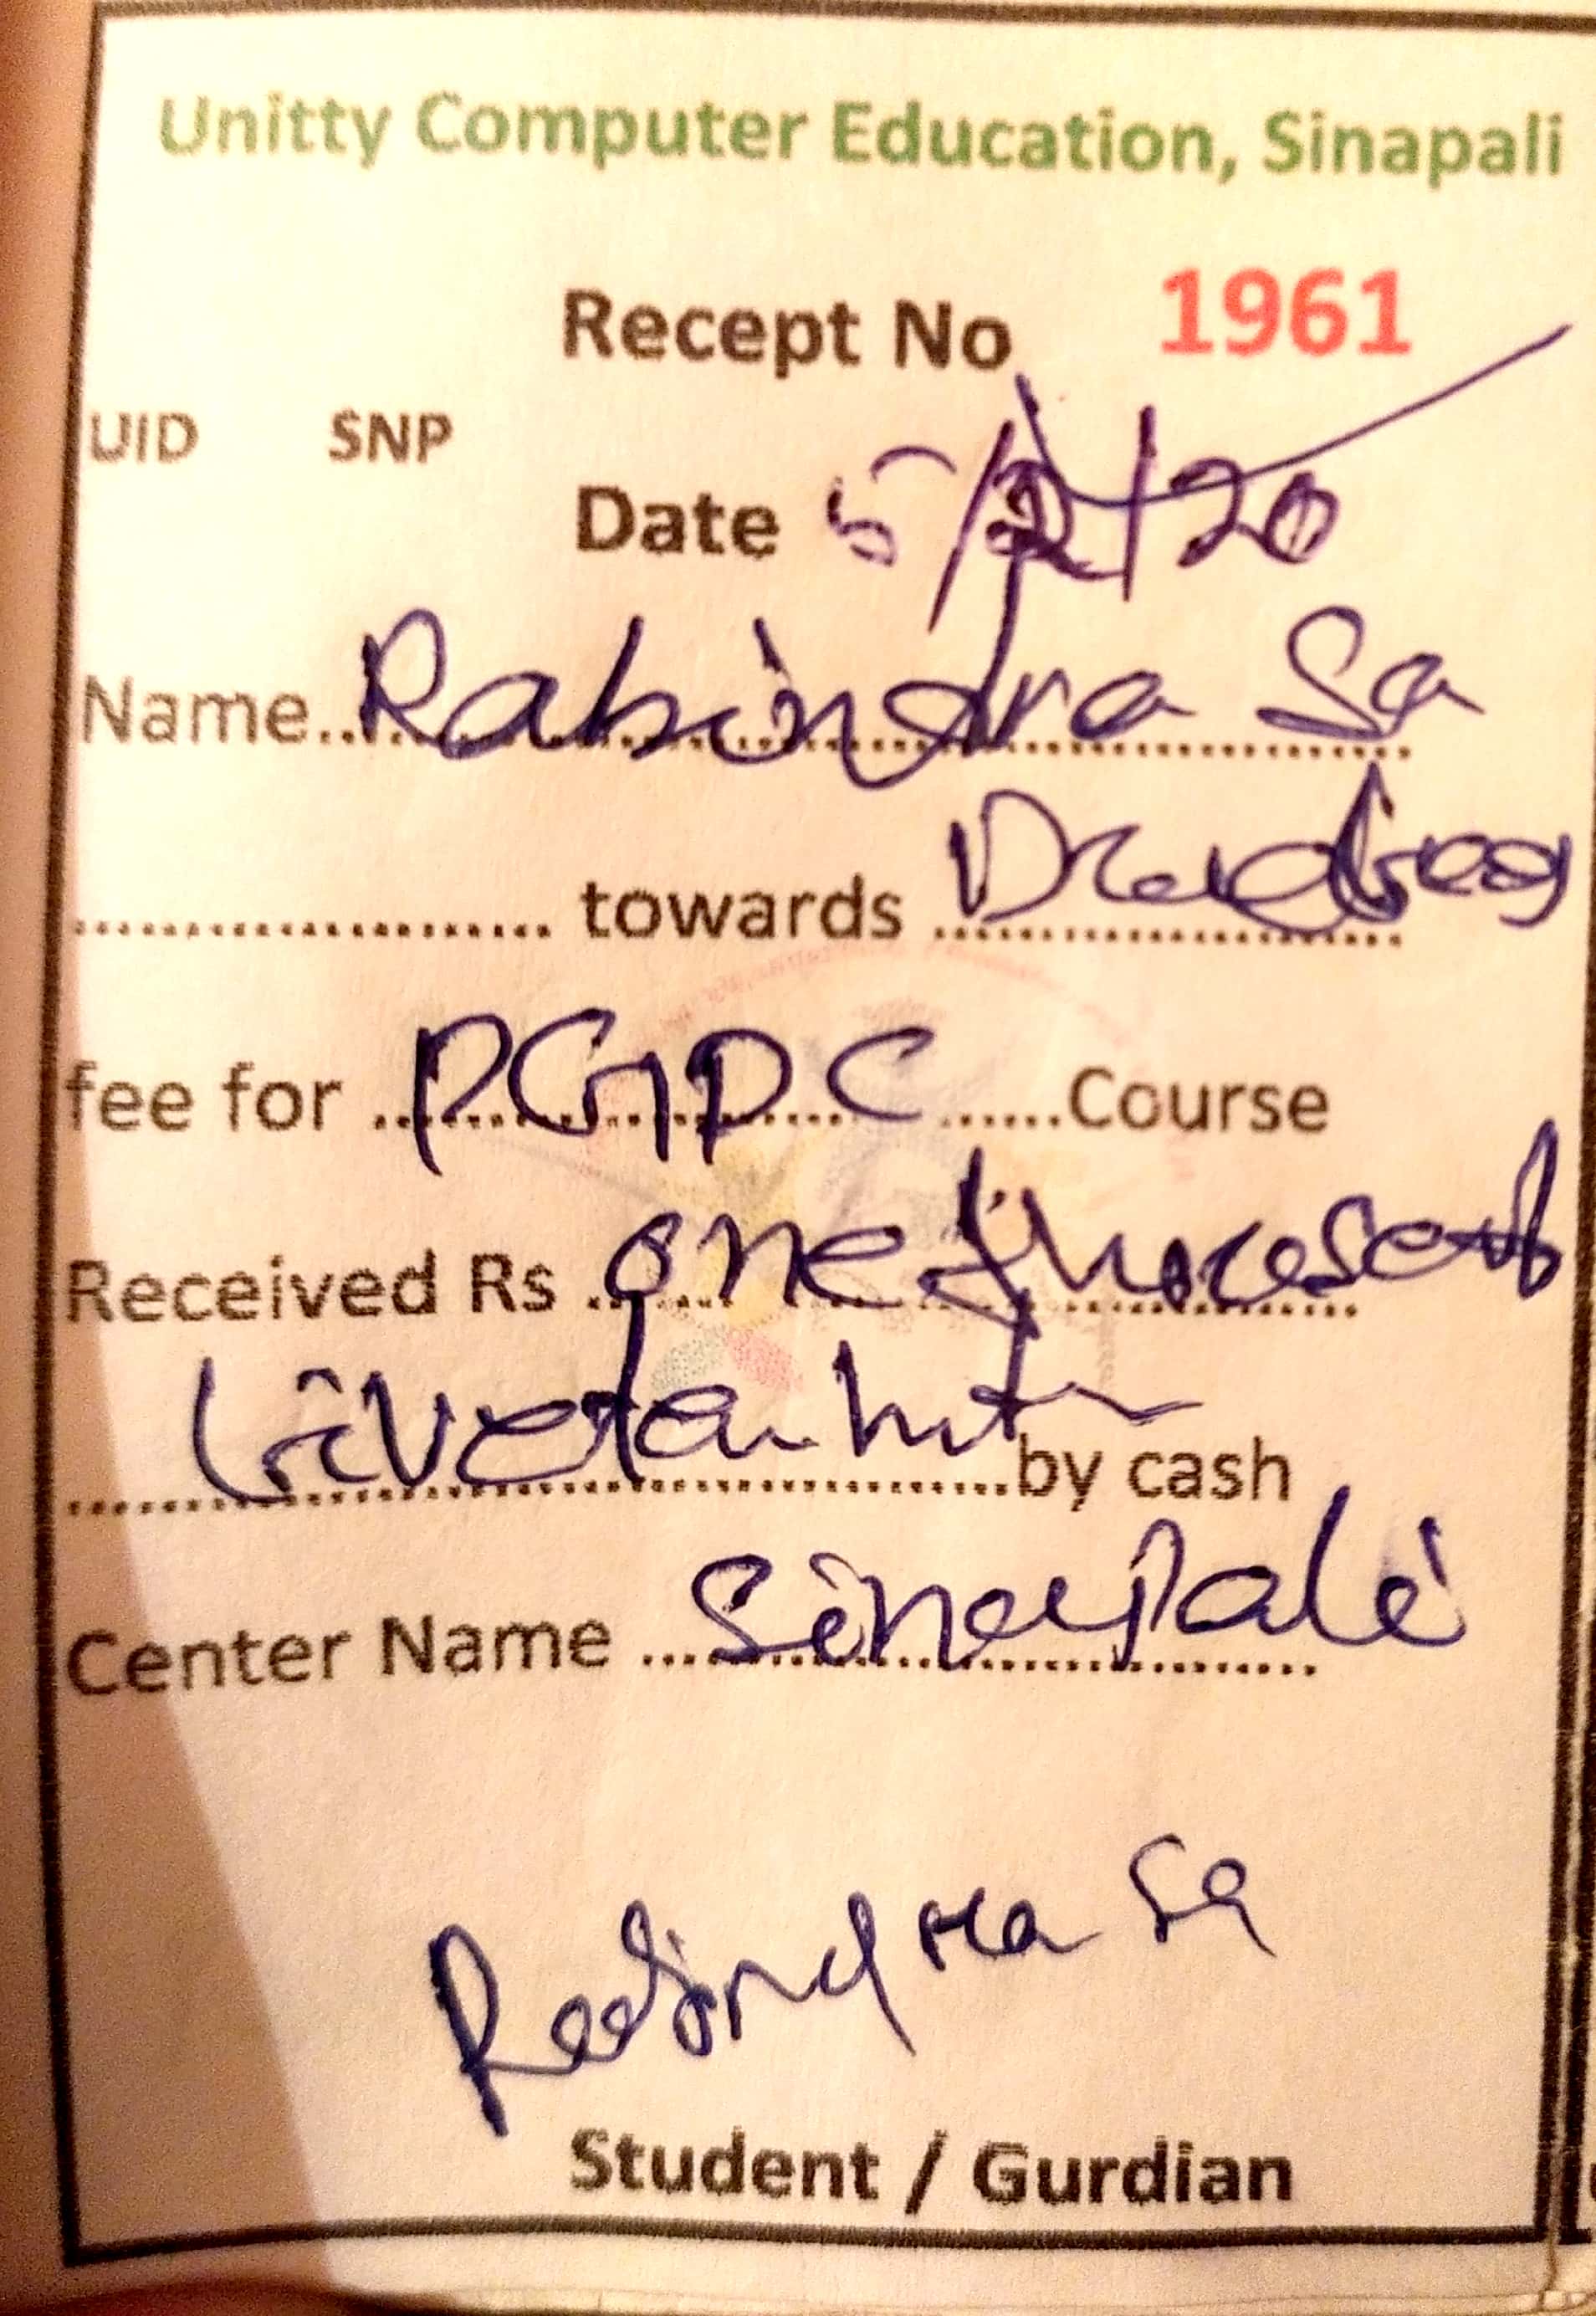 Unitty Computer Education, Sinapali
Recept No 1961
UID SNP
Date 5/2/20
Name Rabindra Sa
towards
fee for PGDC Course
Received Rs one
by cash
Center Name Sinapali
Rabindra Sa
Student / Gurdian